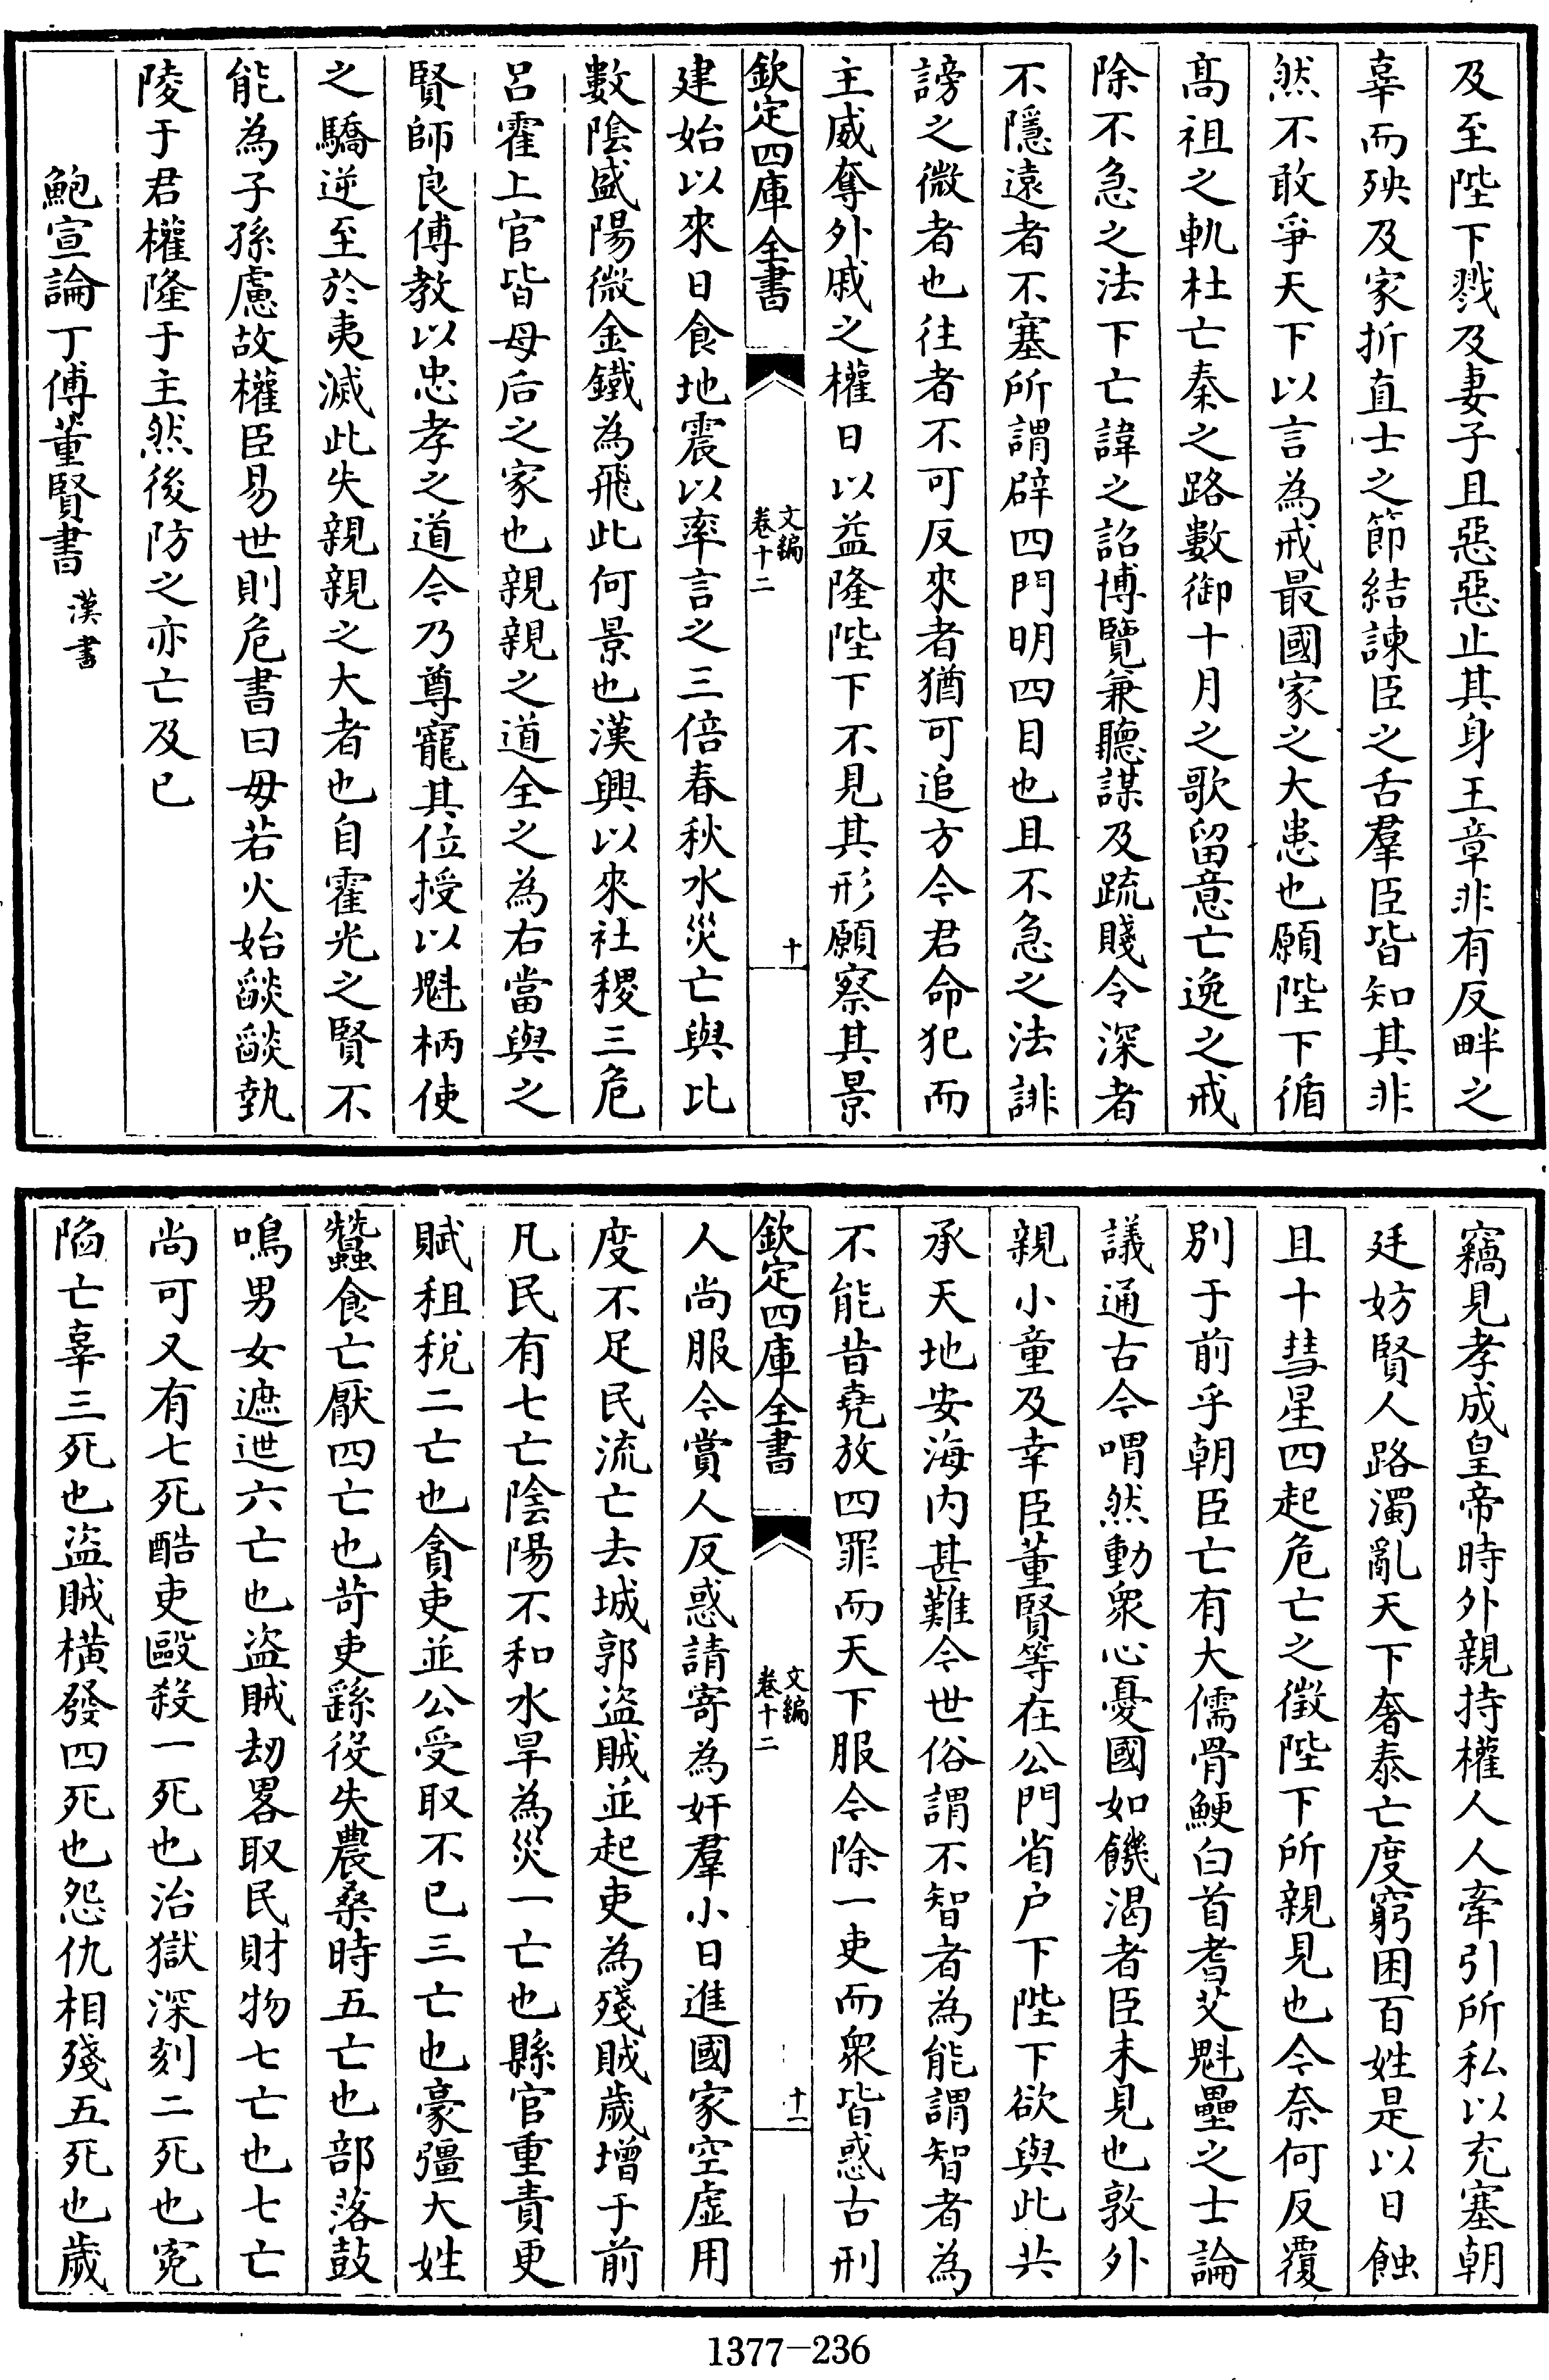 及至陛下戮及妻子且惡惡止其身王章非有反畔之
辜而殃及家折直士之節結諫臣之舌羣臣皆知其非
然不敢爭天下以言為戒最國家之大患也願陛下循
髙祖之軌杜亡秦之路數御十月之歌留意亡逸之戒
除不急之法下亡諱之詔博覽兼聽謀及疏賤令深者
不隱遠者不塞所謂辟四門明四目也且不急之法誹
謗之微者也往者不可反來者猶可追方今君命犯而
主威奪外戚之權日以益隆陛下不見其形願察其景
欽定四庫全書
文編
卷十二
十
建始以來日食地震以率言之三倍春秋水災亡與比
數陰盛陽微金鐵為飛此何景也漢興以來社稷三危
呂霍上官皆母后之家也親親之道全之為右當與之
賢師良傅教以忠孝之道今乃尊寵其位授以魁柄使
之驕逆至於夷滅此失親親之大者也自霍光之賢不
能為子孫慮故權臣易世則危書曰毋若火始燄燄埶
陵于君權隆于主然後防之亦亡及已
鮑宣論丁傅董賢書 漢書
竊見孝成皇帝時外親持權人人牽引所私以充塞朝
廷妨賢人路濁亂天下奢泰亡度窮困百姓是以日蝕
且十彗星四起危亡之徵陛下所親見也今奈何反覆
别于前乎朝臣亡有大儒骨鯁白首耆艾魁壘之士論
議通古今喟然動衆心憂國如饑渴者臣未見也敦外
親小童及幸臣董賢等在公門省户下陛下欲與此共
承天地安海内甚難今世俗謂不智者為能謂智者為
不能昔堯放四罪而天下服今除一吏而衆皆惑古刑
欽定四庫全書
文編
卷十二
十一
人尚服今賞人反惑請寄為奸羣小日進國家空虛用
度不足民流亡去城郭盜賊並起吏為殘賊歲增于前
凡民有七亡陰陽不和水旱為災一亡也縣官重責更
賦租稅二亡也貪吏並公受取不已三亡也豪彊大姓
蠶食亡厭四亡也苛吏繇役失農桑時五亡也部落鼓
鳴男女遮迣六亡也盜賊劫畧取民財物七亡也七亡
尚可又有七死酷吏毆殺一死也治獄深刻二死也寃
陷亡辜三死也盜賊橫發四死也怨仇相殘五死也歲
1377-236